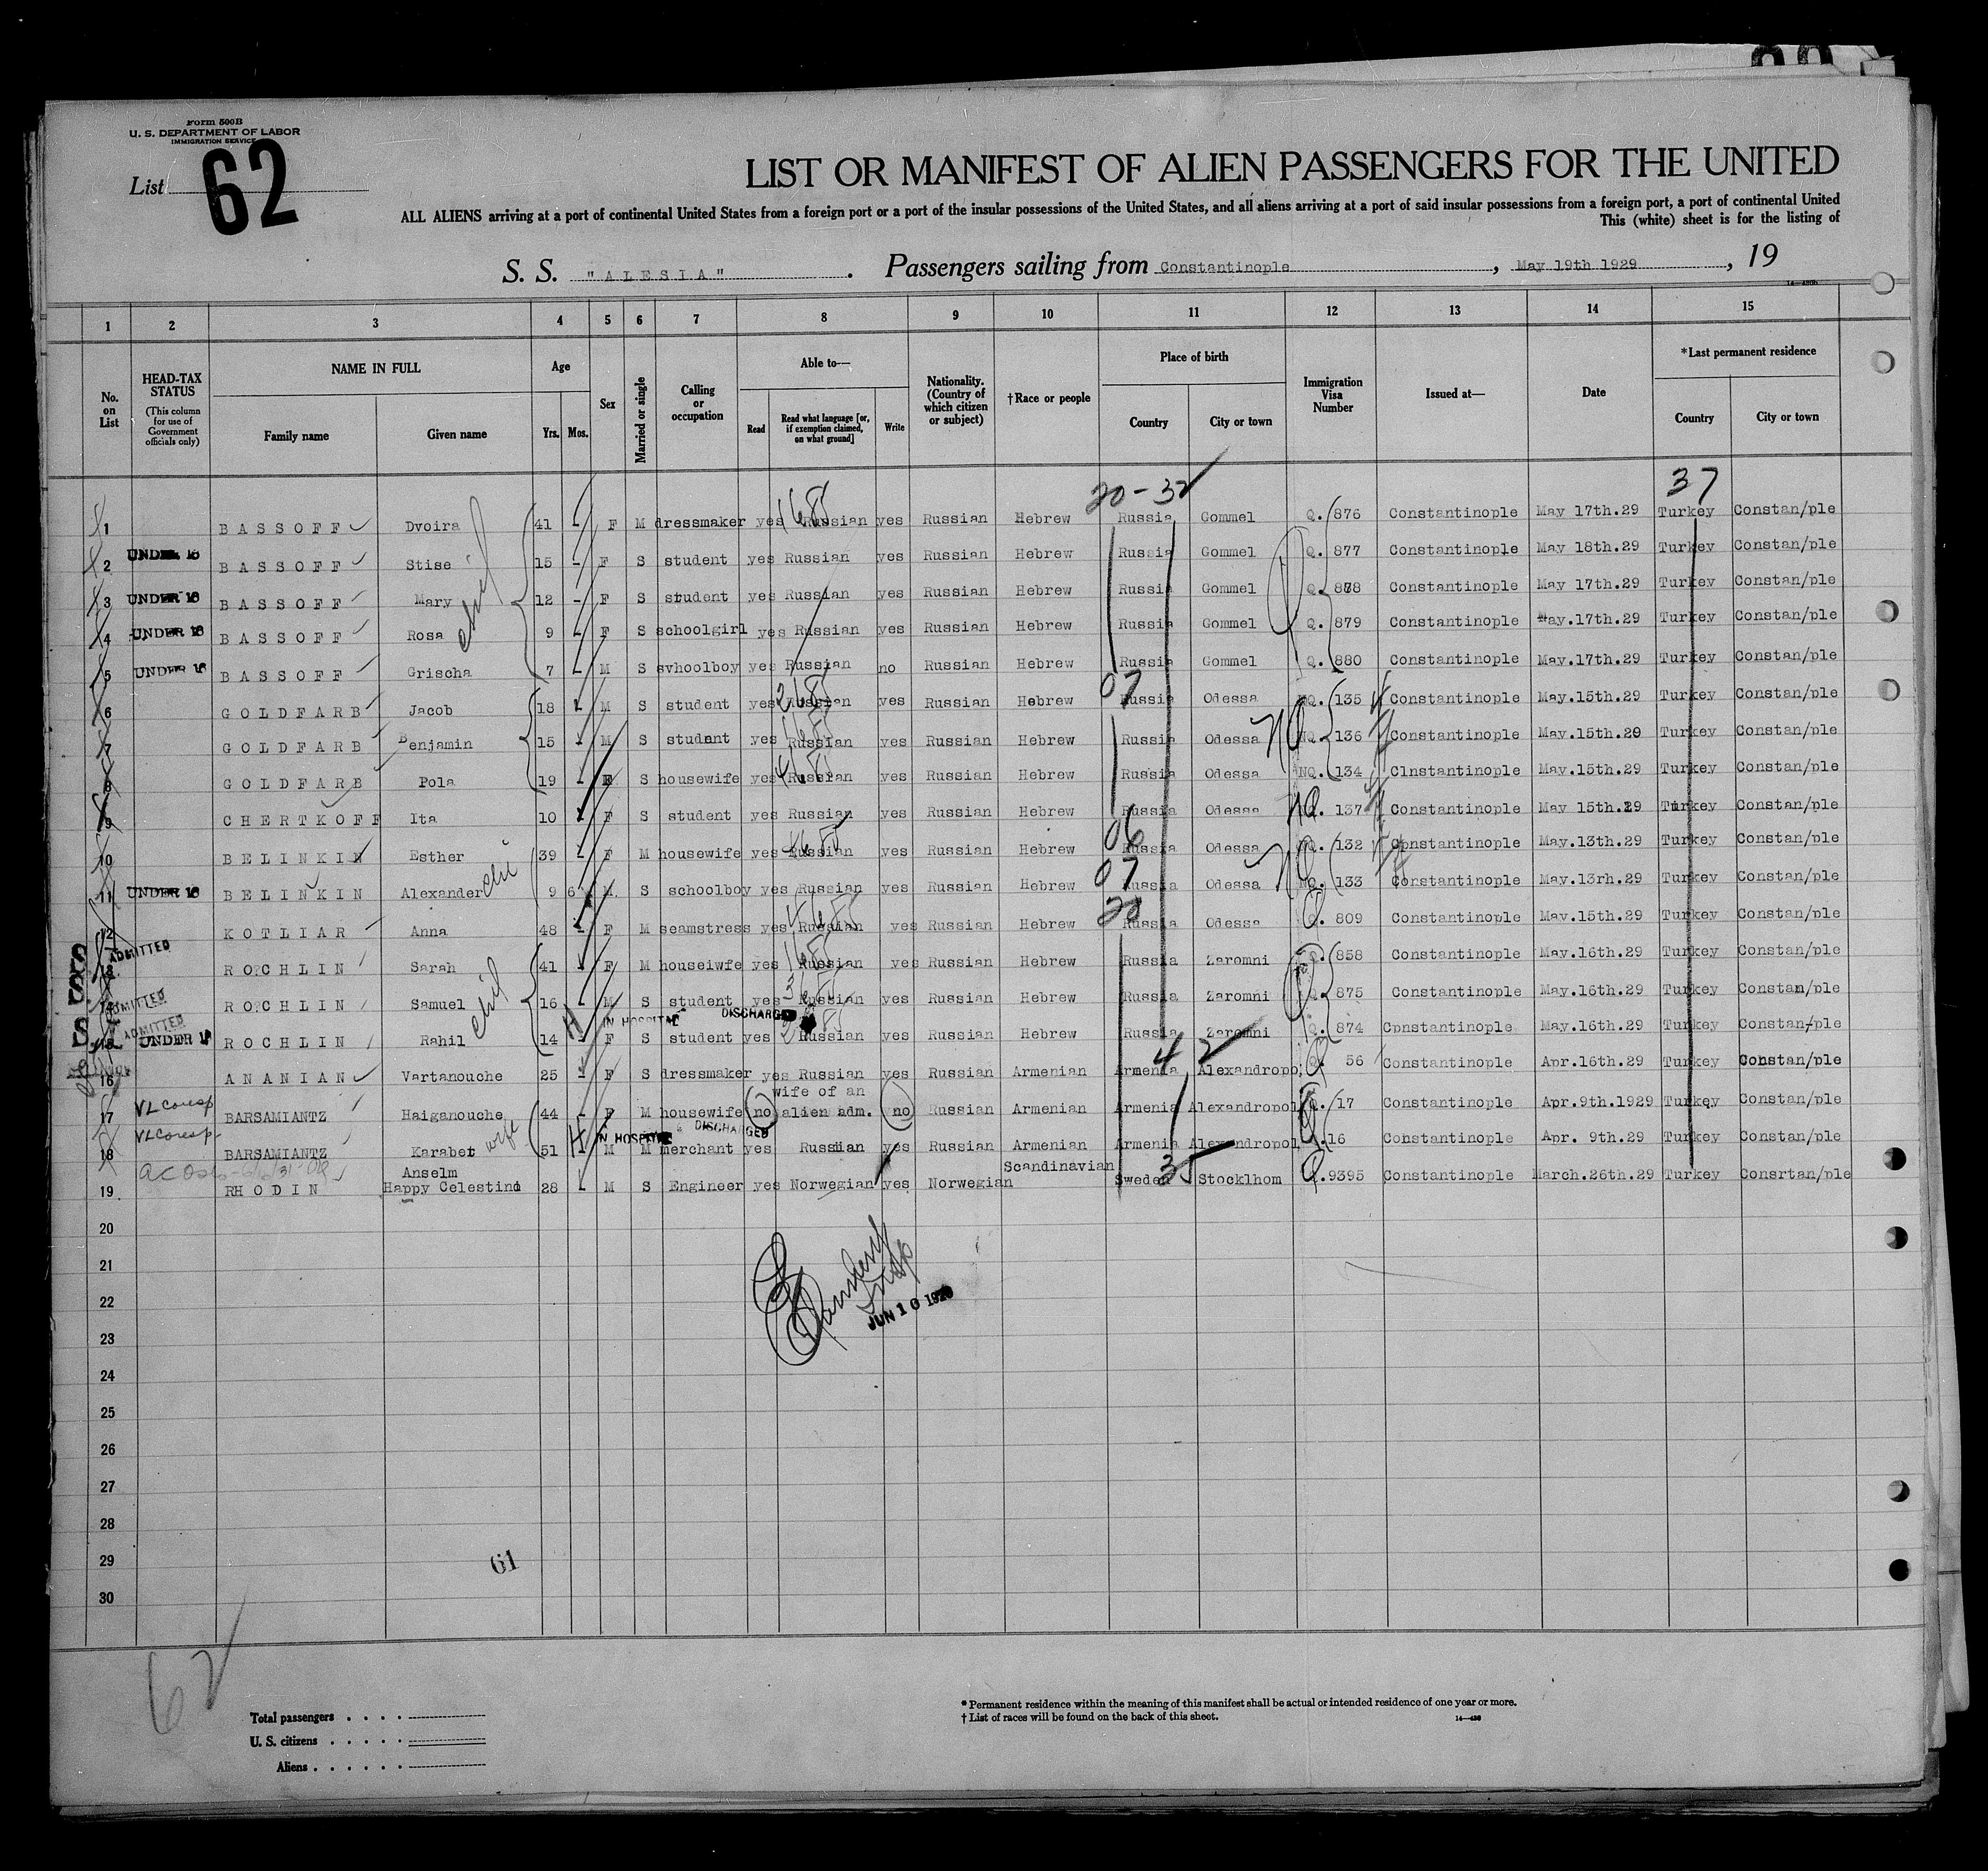 Form 500B
U. S. DEPARTMENT OF LABOR
IMMIGRATION SERVICE
List 62
LIST OR MANIFEST OF ALIEN PASSENGERS FOR THE UNITED
ALL ALIENS arriving at a port of continental United States from a foreign port or a port of the insular possessions of the United States, and all aliens arriving at a port of said insular possessions from a foreign port, a port of continental United
This (white) sheet is for the listing of
S. S. "ALESIA". Passengers sailing from Constantinople, May 19th 1929, 19
1 2 3 4 5 6 7 8 9 10 11 12 13 14 15
No. on List
HEAD-TAX STATUS (This column for use of Government officials only)
NAME IN FULL Family name Given name
Age Yrs. Mos.
Sex
Married or single
Calling or occupation
Able to— Read Read what language [or, if exemption claimed, on what ground] Write
Nationality. (Country of which citizen or subject)
†Race or people
Place of birth Country City or town
Immigration Visa Number
Issued at—
Date
*Last permanent residence Country City or town
20-32 37
1 BASSOFF Dvoira 41 - F M dressmaker yes Russian yes Russian Hebrew Russia Gommel Q. 876 Constantinople May 17th.29 Turkey Constan/ple
2 UNDER 16 BASSOFF Stise 15 - F S student yes Russian yes Russian Hebrew Russia Gommel Q. 877 Constantinople May 18th.29 Turkey Constan/ple
3 UNDER 16 BASSOFF Mary 12 - F S student yes Russian yes Russian Hebrew Russia Gommel Q. 878 Constantinople May 17th.29 Turkey Constan/ple
4 UNDER 16 BASSOFF Rosa 9 - F S schoolgirl yes Russian yes Russian Hebrew Russia Gommel Q. 879 Constantinople May.17th.29 Turkey Constan/ple
5 UNDER 16 BASSOFF Grischa 7 - M S svhoolboy yes Russian no Russian Hebrew Russia Gommel Q. 880 Constantinople May.17th.29 Turkey Constan/ple
07
6 GOLDFARB Jacob 18 - M S student yes Russian yes Russian Hebrew Russia Odessa NQ. 135 Constantinople May.15th.29 Turkey Constan/ple
7 GOLDFARB Benjamin 15 - M S student yes Russian yes Russian Hebrew Russia Odessa NQ. 136 Constantinople May.15th.29 Turkey Constan/ple
8 GOLDFARB Pola 19 - F S housewife yes Russian yes Russian Hebrew Russia Odessa NQ. 134 Clnstantinople May.15th.29 Turkey Constan/ple
9 CHERTKOFF Ita 10 F S student yes Russian yes Russian Hebrew Russia Odessa NQ. 137 Constantinople May 15th.29 Turkey Constan/ple
06
10 BELINKIN Esther 39 - F M housewife yes Russian yes Russian Hebrew Russia Odessa NQ. 132 Cpnstantinople May.13th.29 Turkey Constan/ple
07
11 UNDER 16 BELINKIN Alexander 9 6 M. S schoolboy yes Russian yes Russian Hebrew Russia Odessa NQ. 133 Constantinople May.13rh.29 Turkey Constan/ple
20
12 KOTLIAR Anna 48 - F M seamstress yes Russian yes Russian Hebrew Russia Odessa Q. 809 Constantinople May.15th.29 Turkey Constan/ple
ADMITTED
13 ROCHLIN Sarah 41 - F M houseiwfe yes Russian yes Russian Hebrew Russia Zaromni Q. 858 Constantinople May.16th.29 Turkey Constan/ple
ADMITTED
14 ROCHLIN Samuel 16 - M S student yes Russian yes Russian Hebrew Russia Zaromni Q. 875 Constantinople May.16th.29 Turkey Constan/ple
ADMITTED IN HOSPITAL DISCHARGED
15 UNDER 16 ROCHLIN Rahil 14 - F S student yes Russian yes Russian Hebrew Russia Zaromni Q. 874 Cpnstantinople May.16th.29 Turkey Constan/ple
42
16 ANANIAN Vartanouche 25 - F S dressmaker yes Russian yes Russian Armenian Armenia Alexandropo Q. 56 Constantinople Apr.16th.29 Turkey Constan/ple
17 VL Coresp BARSAMIANTZ Haiganouche 44 - F M housewife no wife of an alien adm. no Russian Armenian Armenia Alexandropol Q. 17 Constantinople Apr.9th.1929 Turkey Constan/ple
IN HOSPITAL DISCHARGED
18 VL Coresp- BARSAMIANTZ Karabet wife 51 - M M merchant yes Russian yes Russian Armenian Armenia Alexandropol Q. 16 Constantinople Apr. 9th.29 Turkey Constan/ple
35
19 RHODIN Anselm Happy Celestino 28 - M S Engineer yes Norwegian yes Norwegian Scandinavian Sweden Stocklhom Q. 9395 Constantinople March.26th.29 Turkey Consrtan/ple
20
21
22
JUN 10 1929
23
24
25
26
27
28
29
61
30
62
Total passengers
U. S. citizens
Aliens
* Permanent residence within the meaning of this manifest shall be actual or intended residence of one year or more.
† List of races will be found on the back of this sheet.
14—430